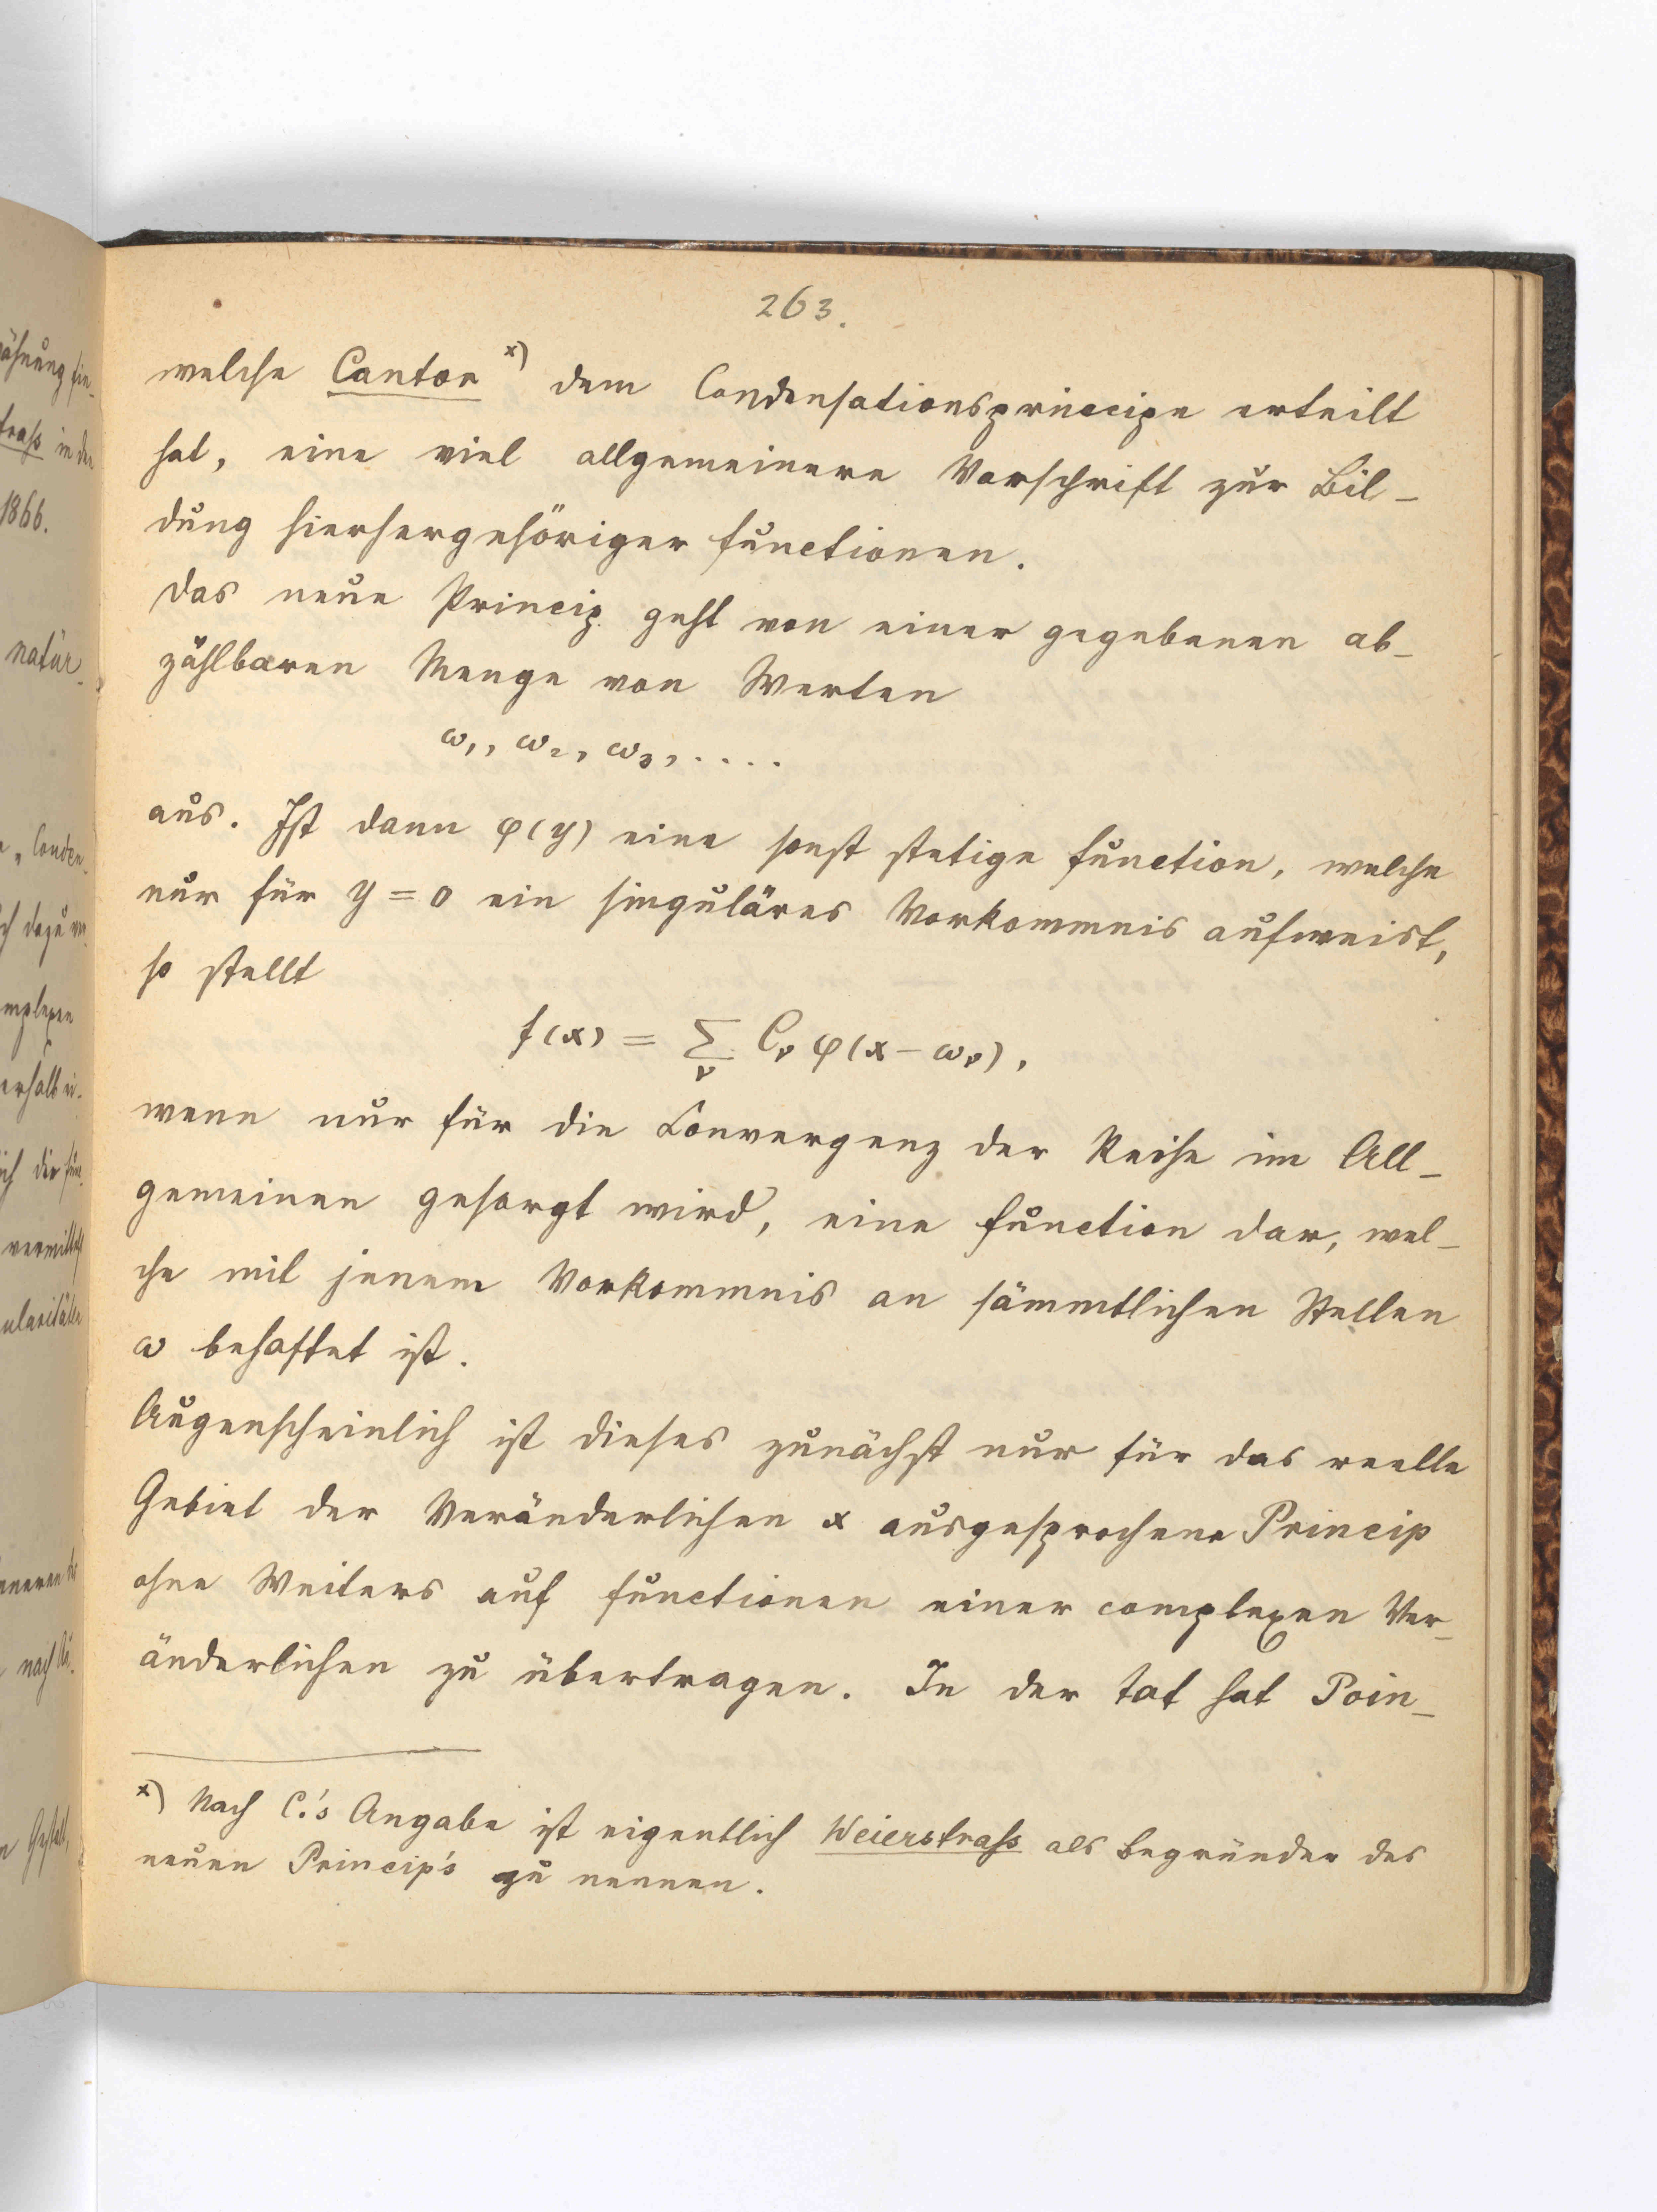 263.
welche Cantor x) dem Condensationsprincipe erteilt
hat, eine viel allgemeinere Vorschrift zur Bil-
dung hierhergehöriger Functionen.
Das neue Princip geht von einer gegebenen ab-
zählbaren Menge von Werten
ω₁, ω₂, ω₃, . . . .
aus. Ist dann φ(y) eine sonst stetige Function, welche
nur für y = 0 ein singuläres Vorkommnis aufweist,
so stellt
f(x) = Σ_ν C_ν φ(x − ω_ν),
wenn nur für die Convergenz der Reihe im All-
gemeinen gesorgt wird, eine Function dar, wel-
che mit jenem Vorkommnis an sämmtlichen Stellen
ω behaftet ist.
Augenscheinlich ist dieses zunächst nur für das reelle
Gebiet der Veränderlichen x ausgesprochene Princip
ohne Weiters auf Functionen einer complexen Ver-
änderlichen zu übertragen. In der Tat hat Poin-
x) Nach C.'s Angabe ist eigentlich Weierstraß als Begründer des
neuen Princip's zu nennen.
1866.
natür-